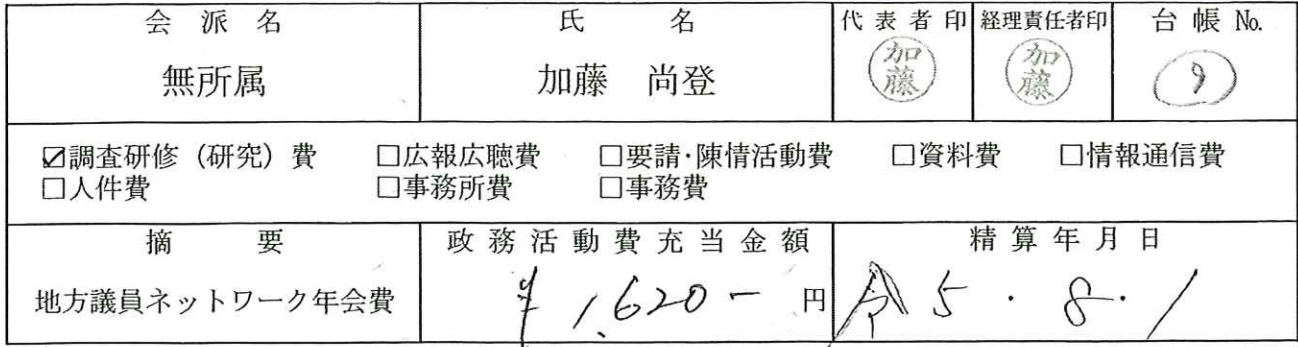 会派名 氏名 代表者印 経理責任者印 台帳 No.
無所属 加藤 尚登 加藤 加藤 9
☑調査研修（研究）費 □広報広聴費 □要請･陳情活動費 □資料費 □情報通信費
□人件費 □事務所費 □事務費
摘要 政務活動費充当金額 精算年月日
地方議員ネットワーク年会費 ¥1,620- 円 令5・8・1